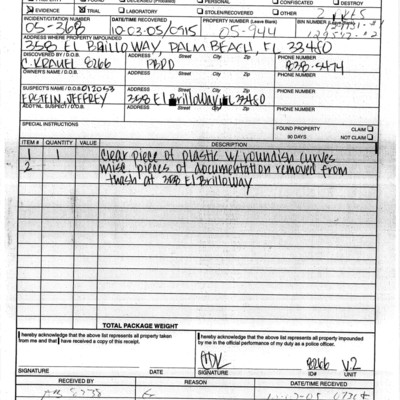 EVIDENCE TRIAL LABORATORY STOLEN/RECOVERED OTHER
INCIDENT/CITATION NUMBER DATE/TIME RECOVERED PROPERTY NUMBER (Leave Blank) BIN NUMBER
05-368 10.03.05/0915 05-944
ADDRESS WHERE PROPERTY IMPOUNDED
358 El Brilloway, PALM BEACH, FL 33480
DISCOVERED BY / D.O.B. ADDRESS Street City Zip PHONE #
8266 PBPD 838-5474
OWNER'S NAME / D.O.B. ADDRESS Street City Zip PHONE #
SUSPECT'S NAME / D.O.B. ADDRESS Street City Zip PHONE #
EPSTEIN, JEFFREY 358 El Brilloway 33480
ADDRESS Street City Zip PHONE #
SPECIAL INSTRUCTIONS
FOUND PROPERTY CLAIM
90 DAYS NOT CLAIM
ITEM # QUANTITY VALUE DESCRIPTION
1 clear piece of plastic w/ roundish curves
2 misc pieces of documentation removed from
trash at 358 El Brilloway
TOTAL PACKAGE WEIGHT
I hereby acknowledge that the above list represents all property taken from me and that I have received a copy of this receipt.
I hereby acknowledge that the above list represents all property impounded by me in the official performance of my duty as a police officer.
8266 V2
SIGNATURE DATE SIGNATURE ID# UNIT
RECEIVED BY REASON DATE/TIME RECEIVED